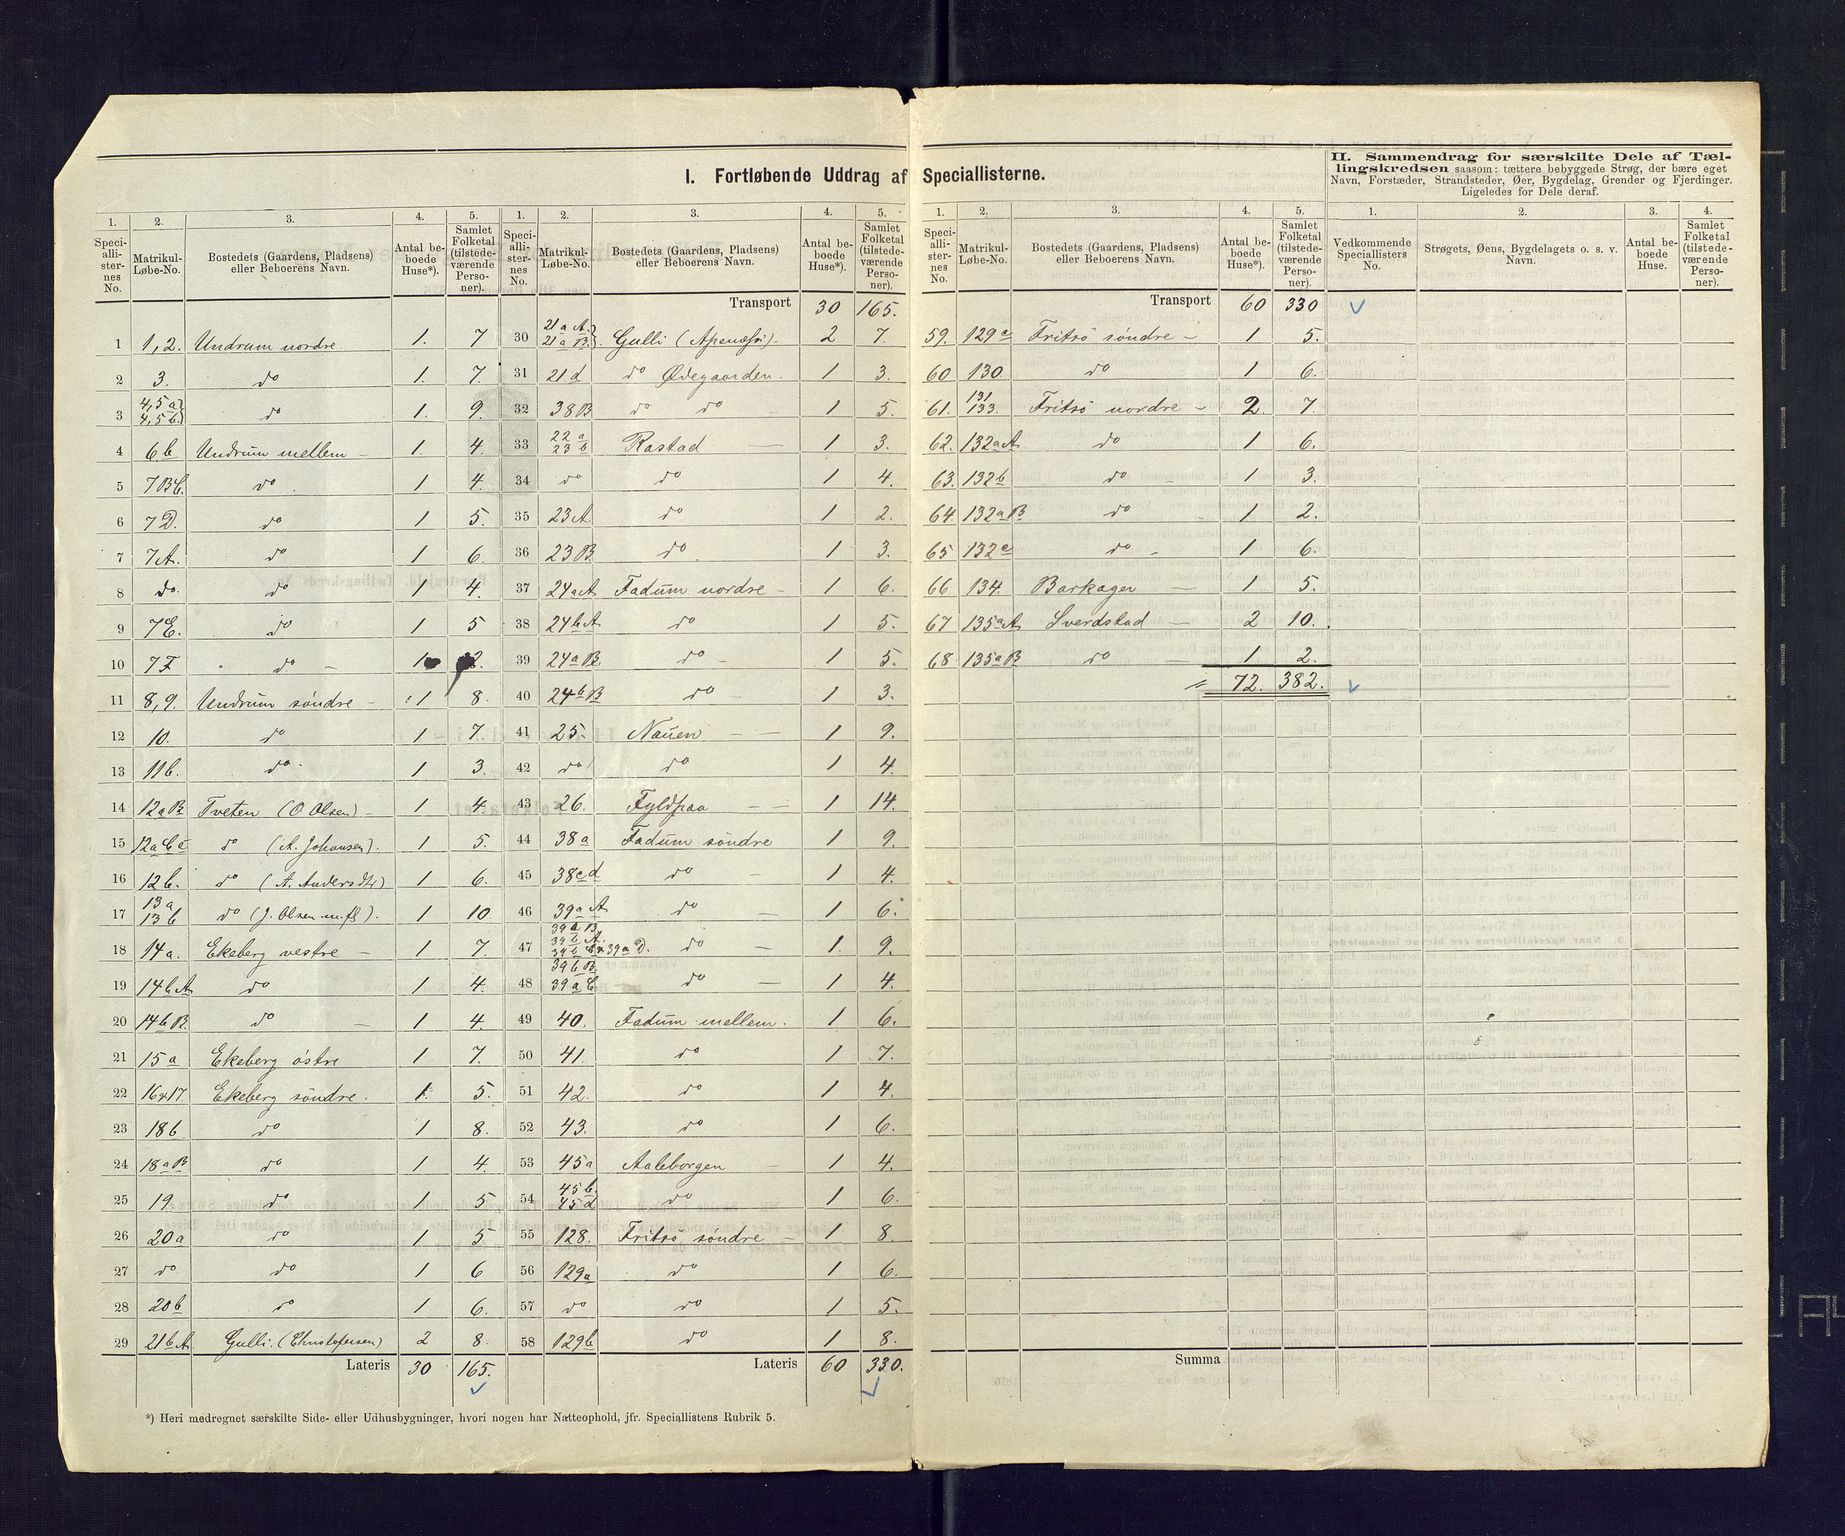 I. Fortløbende Uddrag af Speciallisterne.
II. Sammendrag for særskilte Dele af Tællingskredsen saasom: tættere bebyggede Strøg, der bære eget
Navn, Forstæder, Strandsteder, Øer, Bygdelag, Grender og Fjerdinger.
Ligeledes for Dele deraf.
1. 2. 3. 4. 5.
Speciallisternes No. Matrikul-Løbe-No. Bostedets (Gaardens, Pladsens) eller Beboerens Navn. Antal beboede Huse*). Samlet Folketal (tilstedeværende Personer).
1 1,2. Undrum nordre 1. 7
2 3. do 1. 7.
3 4,5a 4,5b. do 1. 9.
4 6b Undrum mellem - 1. 4.
5 7BC. do 1 4.
6 7D. do 1 5.
7 7A. do 1 6.
8 do. do 1 4.
9 7E. do 1 5
10 7F do - 1 2.
11 8,9. Undrum søndre - 1 8.
12 10. do 1 7.
13 11b. do 1 3.
14 12aB Tveten (O Olsen) - 1 4.
15 12aC do (A. Johansen). 1 5.
16 12b. do (A. Andersdtr) 1 6.
17 13a 13b do (J. Olsen m.fl). 1 10
18 14a. Ekeberg vestre - 1 7.
19 14bA do 1 4.
20 14bB. do - 1 4.
21 15a Ekeberg østre 1 7.
22 16&17. Ekeberg søndre. 1. 5.
23 18b. do 1 8.
24 18aB do 1 4.
25 19. do 1 5
26 20a do 1 5
27 do do 1 6
28 20b do 1 6.
29 21bA Gulli. (Christofersen) 2 8.
Lateris 30 165.
1. 2. 3. 4. 5.
Speciallisternes No. Matrikul-Løbe-No. Bostedets (Gaardens, Pladsens) eller Beboerens Navn. Antal beboede Huse*). Samlet Folketal (tilstedeværende Personer).
Transport 30 165.
30 21aA. 21aB. Gulli 2 7.
31 21d do Ødegaarden. 1 3.
32 38B do do 1 5.
33 22a 23b Rastad - 1 3.
34 do do 1 4.
35 23A do 1 2.
36 23B do. 1 3.
37 24aA Fadum nordre - 1 6.
38 24bA do 1 5.
39 24aB. do - 1 5.
40 24bB do - 1 3.
41 25. Nauen - - 1 9.
42 do do 1 4.
43 26. Fyldpaa - - 1 14.
44 38a Fadum søndre 1 9.
45 38cd do - 1 4.
46 39aA do - 1 6.
47 39aB. 39bA. 39bC & 39aD. do - 1 9.
48 39bB. 39aC do - 1 4.
49 40. Fadum mellem. 1 6.
50 41. do 1 7.
51 42. do 1 4.
52 43. do 1 6.
53 45a Aaleborgen - 1 4.
54 45b. 45d do 1 6.
55 128. Fritsø søndre - 1 8.
56 129a do 1 6.
57 do do 1 5.
58 129b do 1 8.
Lateris 60 330.
1. 2. 3. 4. 5.
Speciallisternes No. Matrikul-Løbe-No. Bostedets (Gaardens, Pladsens) eller Beboerens Navn. Antal beboede Huse*). Samlet Folketal (tilstedeværende Personer).
Transport 60 330
59. 129c Fritsø søndre - 1 5.
60 130 do 1 6.
61. 131 133. Fritsø nordre - 2. 7.
62. 132aA do 1 6.
63. 132b do 1 3.
64. 132aB do - 1 2.
65 132c do - 1 6.
66 134. Barkager - 1 5.
67 135aA Sverdstad - 2 10.
68. 135aB do 1 2.
72. 382.
Summa
1. 2. 3. 4.
Vedkommende Speciallisters No. Strøgets, Øens, Bygdelagets o. s. v. Navn. Antal beboede Huse. Samlet Folketal (tilstedeværende Personer).
*) Heri medregnet særskilte Side- eller Udhusbygninger, hvori nogen har Natteophold, jfr. Speciallistens Rubrik 5.